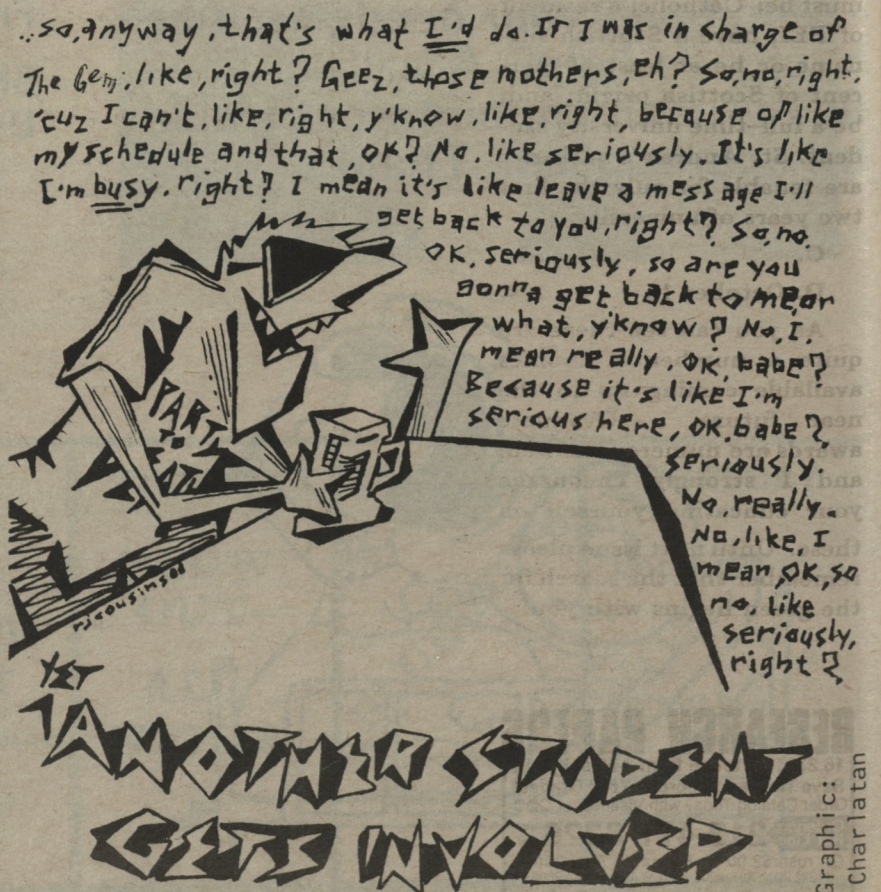 ..so, anyway, that's what I'd do. If I was in charge of
The Gem, like, right? Geez, those mothers, eh? So, no, right,
'cuz I can't, like, right, y'know, like, right, because of like
my schedule and that, OK? No, like seriously. It's like
I'm busy, right? I mean it's like leave a message I'll
get back to you, right? So, no.
OK, seriously, so are you
gonna get back to me, or
what, y'know? No, I.
mean really. OK, babe?
Because it's like I'm
serious here, OK, babe?
Seriously.
No, really.
No, like, I
mean, OK, so
no, like
seriously,
right?
PARTY
TO
rjcousinsod
YET
ANOTHER STUDENT
GETS INVOLVED
Graphic:
Charlatan